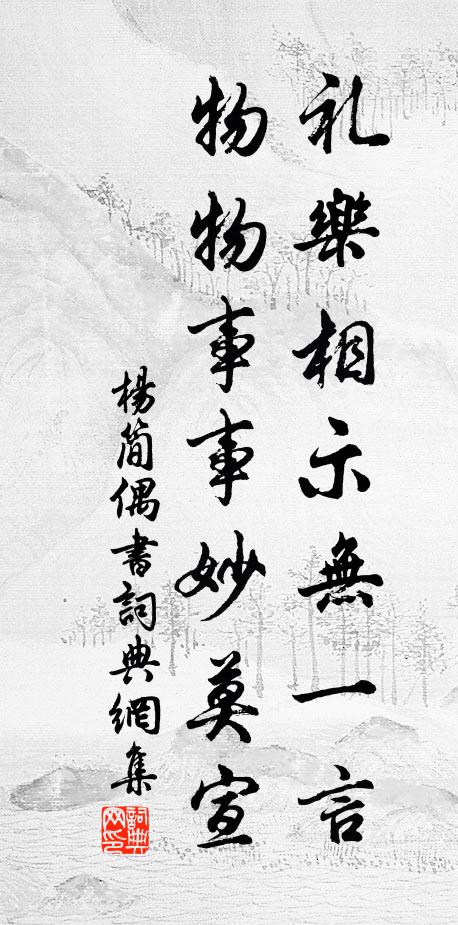 礼樂相示無一言
物物事事妙莫宣
楊简偶書詞典網集
詞典
网印